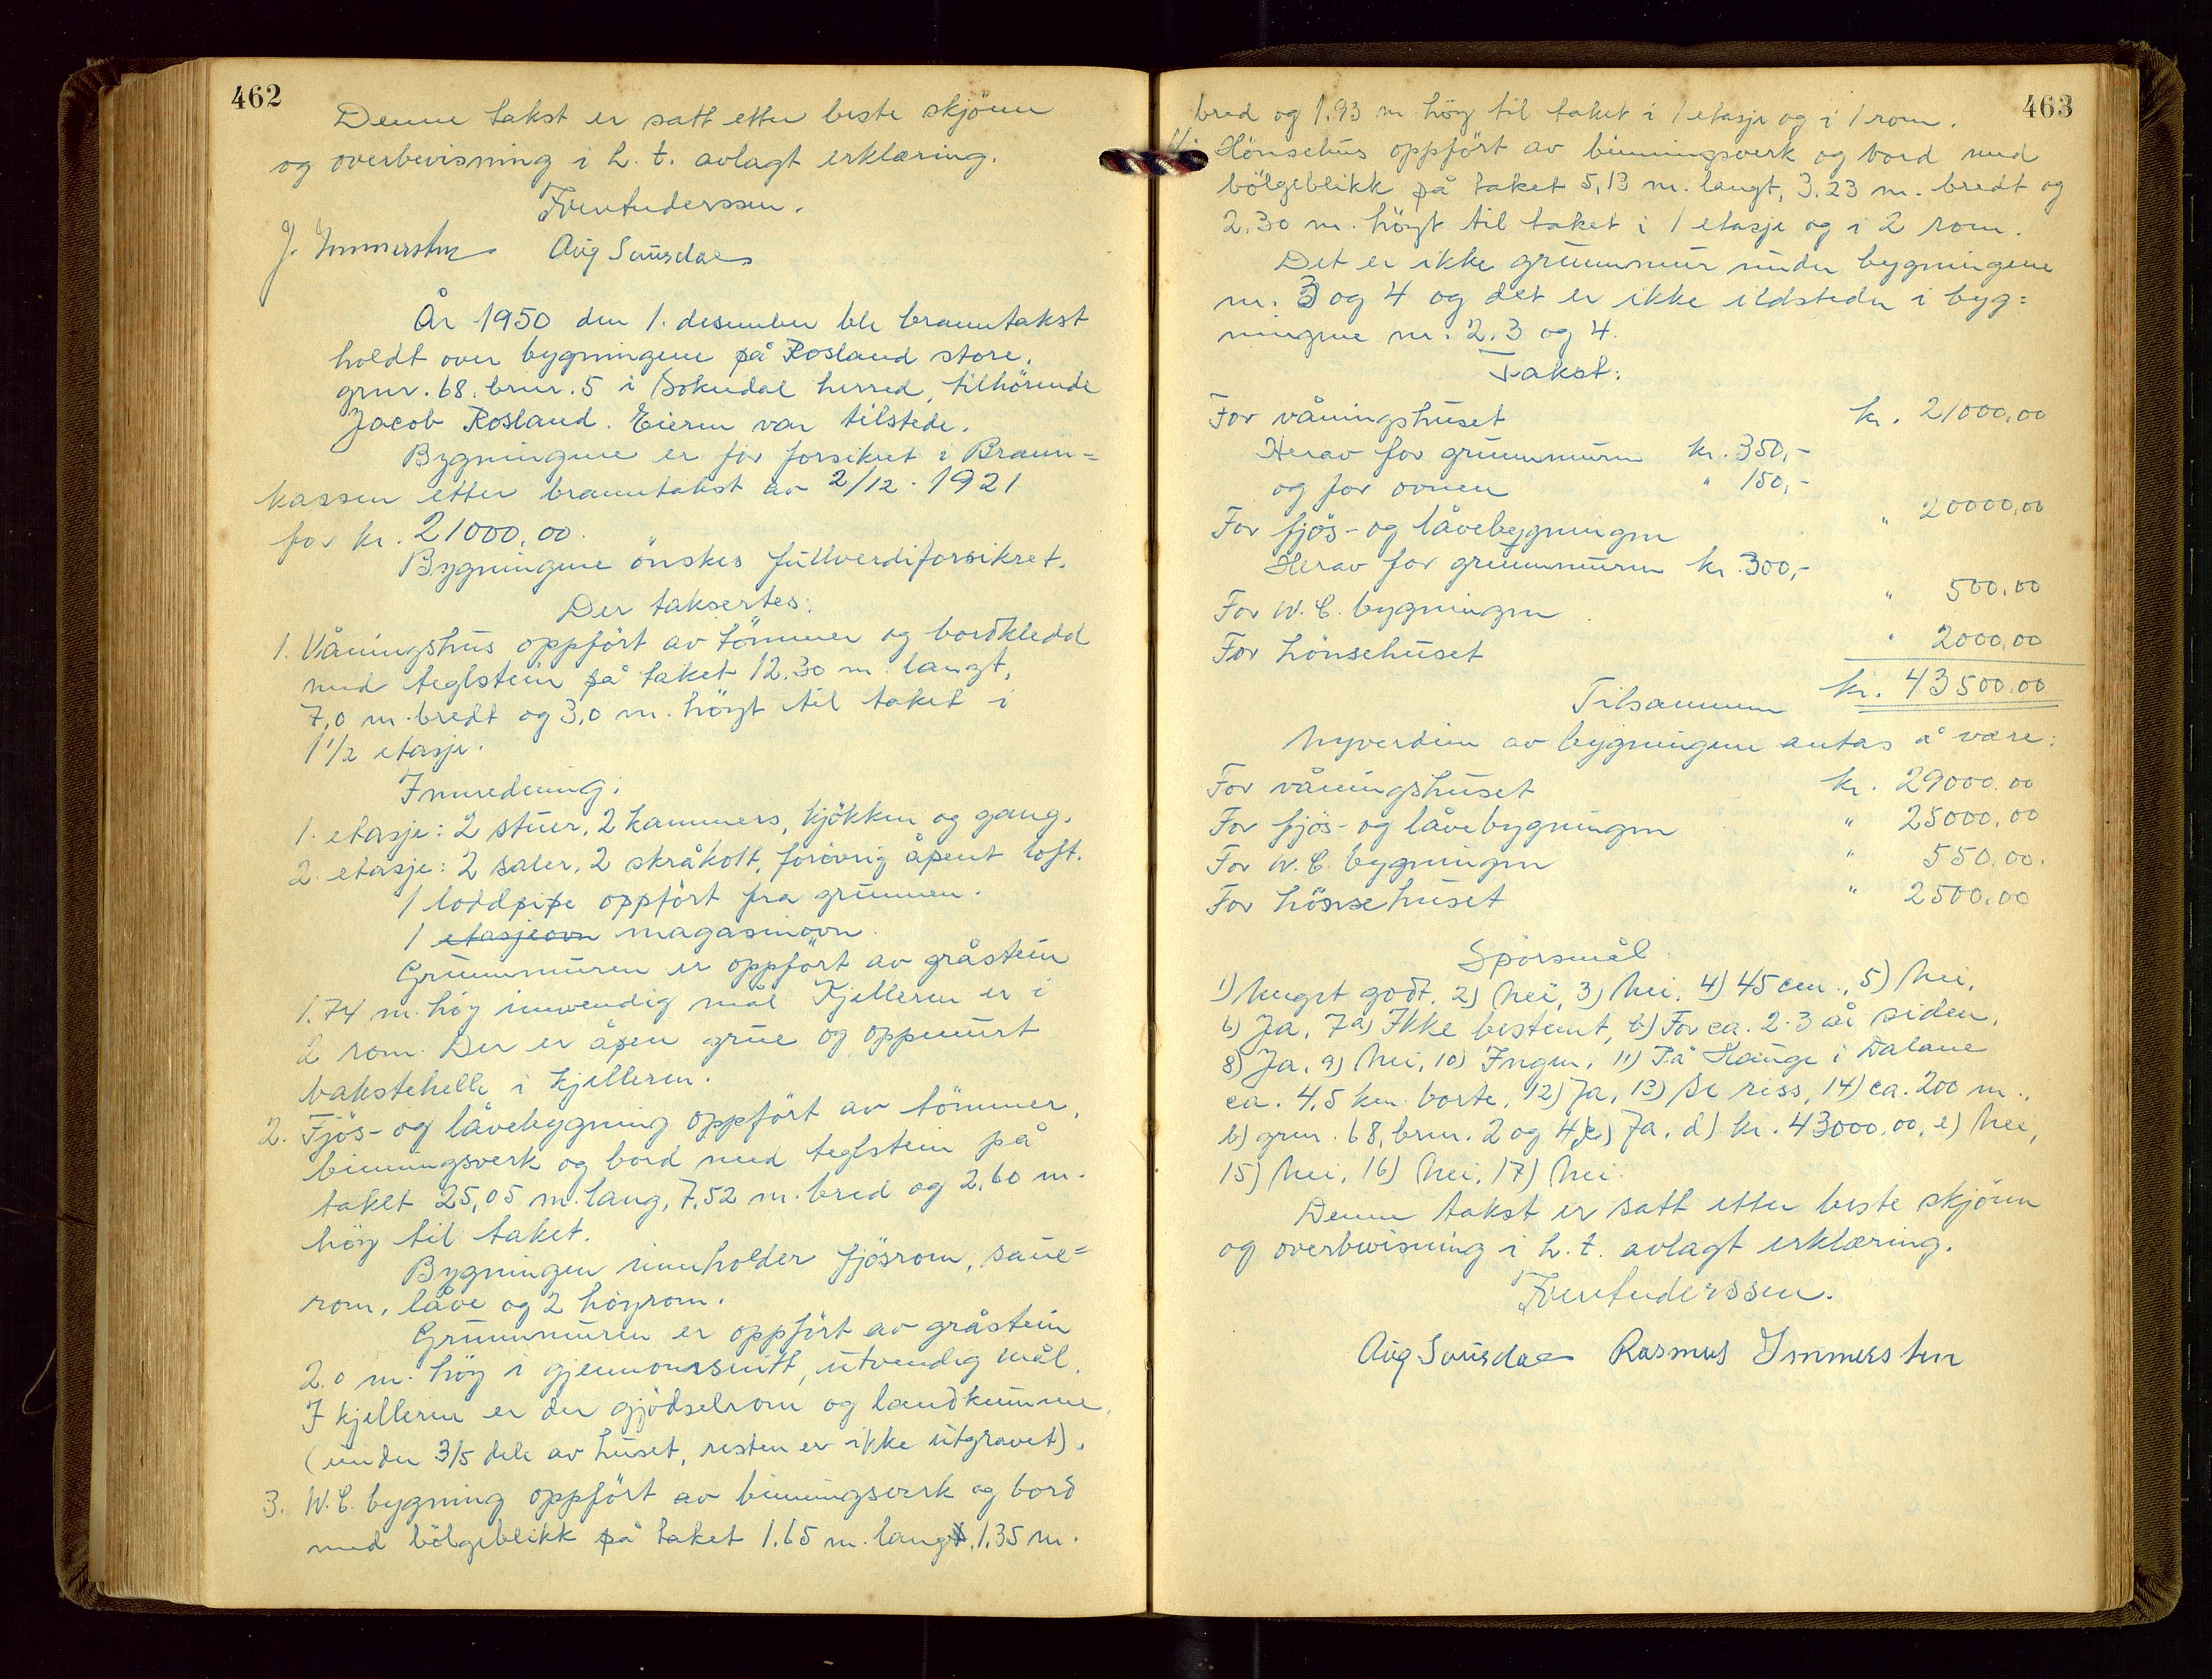 462
Denne takst er satt etter beste skjönn
og overbevisning i h. t. avlagt erklæring.
J. Immerstein Aug Saursdal
År 1950 den 1. desember ble branntakst
holdt over bygningene på Rosland store,
gnr. 68. bnr. 5 i Sokndal herred, tilhörende
Jacob Rosland. Eieren var tilstede.
Bygningene er för forsikret i Brann=
kassen etter branntakst av 2/12. 1921
for kr. 21000,00.
Bygningene önskes fullverdiforsikret.
Der taksertes:
1. Våningshus oppfört av tömmer og bordkledd
med teglstein på taket 12,30 m. langt,
7,0 m. bredt og 3,0 m. höyt til taket i
1 1/2 etasje.
Innredning:
1. etasje: 2 stuer, 2 kammers, kjökken og gang.
2. etasje: 2 saler, 2 skråkott, forövrig åpent loft.
1 loddpipe oppfört fra grunnen.
1 etasjeovn magasinovn
Grunnmuren er oppfört av gråstein
1.74 m. höy innvendig mål Kjelleren er i
2 rom. Der er åpen grue og oppmurt
bakstehelle i kjelleren.
2. Fjös- og låvebygning oppfört av tömmer,
binningsverk og bord med teglstein på
taket 25,05 m. lang, 7,52 m. bred og 2,60 m.
höy til taket.
Bygningen inneholder fjösrom, saue=
rom, låve og 2 höyrom.
Grunnmuren er oppfört av gråstein
2.0 m. höy i gjennomssnitt, utvendig mål.
I kjelleren er der gjödselrom og landkumme
(under 3/5 dele av huset, resten er ikke utgravet).
3. W.C. bygning oppfört av binningsverk og bord
med bölgeblikk på taket 1.65 m. lang, 1,35 m.
463
bred og 1,93 m höy til taket i 1 etasje og i 1 rom.
4. Hönsehus oppfört av binningsverk og bord med
bölgeblikk på taket 5,13 m. langt, 3.23 m. bredt og
2,30 m. höyt til taket i 1 etasje og i 2 rom.
Det er ikke grunnmur under bygningene
nr. 3 og 4 og det er ikke ildsteder i byg=
ningene nr. 2, 3 og 4.
Takst:
For våningshuset kr. 21000,00
Herav for grunnmuren kr. 350,-
og for ovnen " 150,-
For fjös- og låvebygningen " 20000,00
Herav for grunnmuren kr. 300,-
For W.C. bygningen " 500,00
For hönsehuset " 2000,00
Tilsammen kr. 43500,00
Nyverdien av bygningene antas å være:
For våningshuset kr. 29000,00
For fjös- og låvebygningen " 25000,00
For W.C. bygningen " 550,00.
For hönsehuset " 2500,00
Spörsmål
1) Meget godt, 2) Nei, 3) Nei, 4) 45 cm., 5) Nei,
6) Ja, 7a) Ikke bestemt, b) For ca. 2-3 år siden,
8) Ja, 9) Nei, 10) Ingen, 11) På Hauge i Dalane
ca. 4,5 km. borte, 12) Ja, 13) Se riss, 14) ca. 200 m.,
b) gnr. 68, bnr. 2 og 4, c) Ja, d) kr. 43000,00, e) Nei,
15) Nei, 16) Nei, 17) Nei.
Denne takst er satt etter beste skjönn
og overbevisning i h. t. avlagt erklæring.
Aug Saursdal Rasmus Immerstein